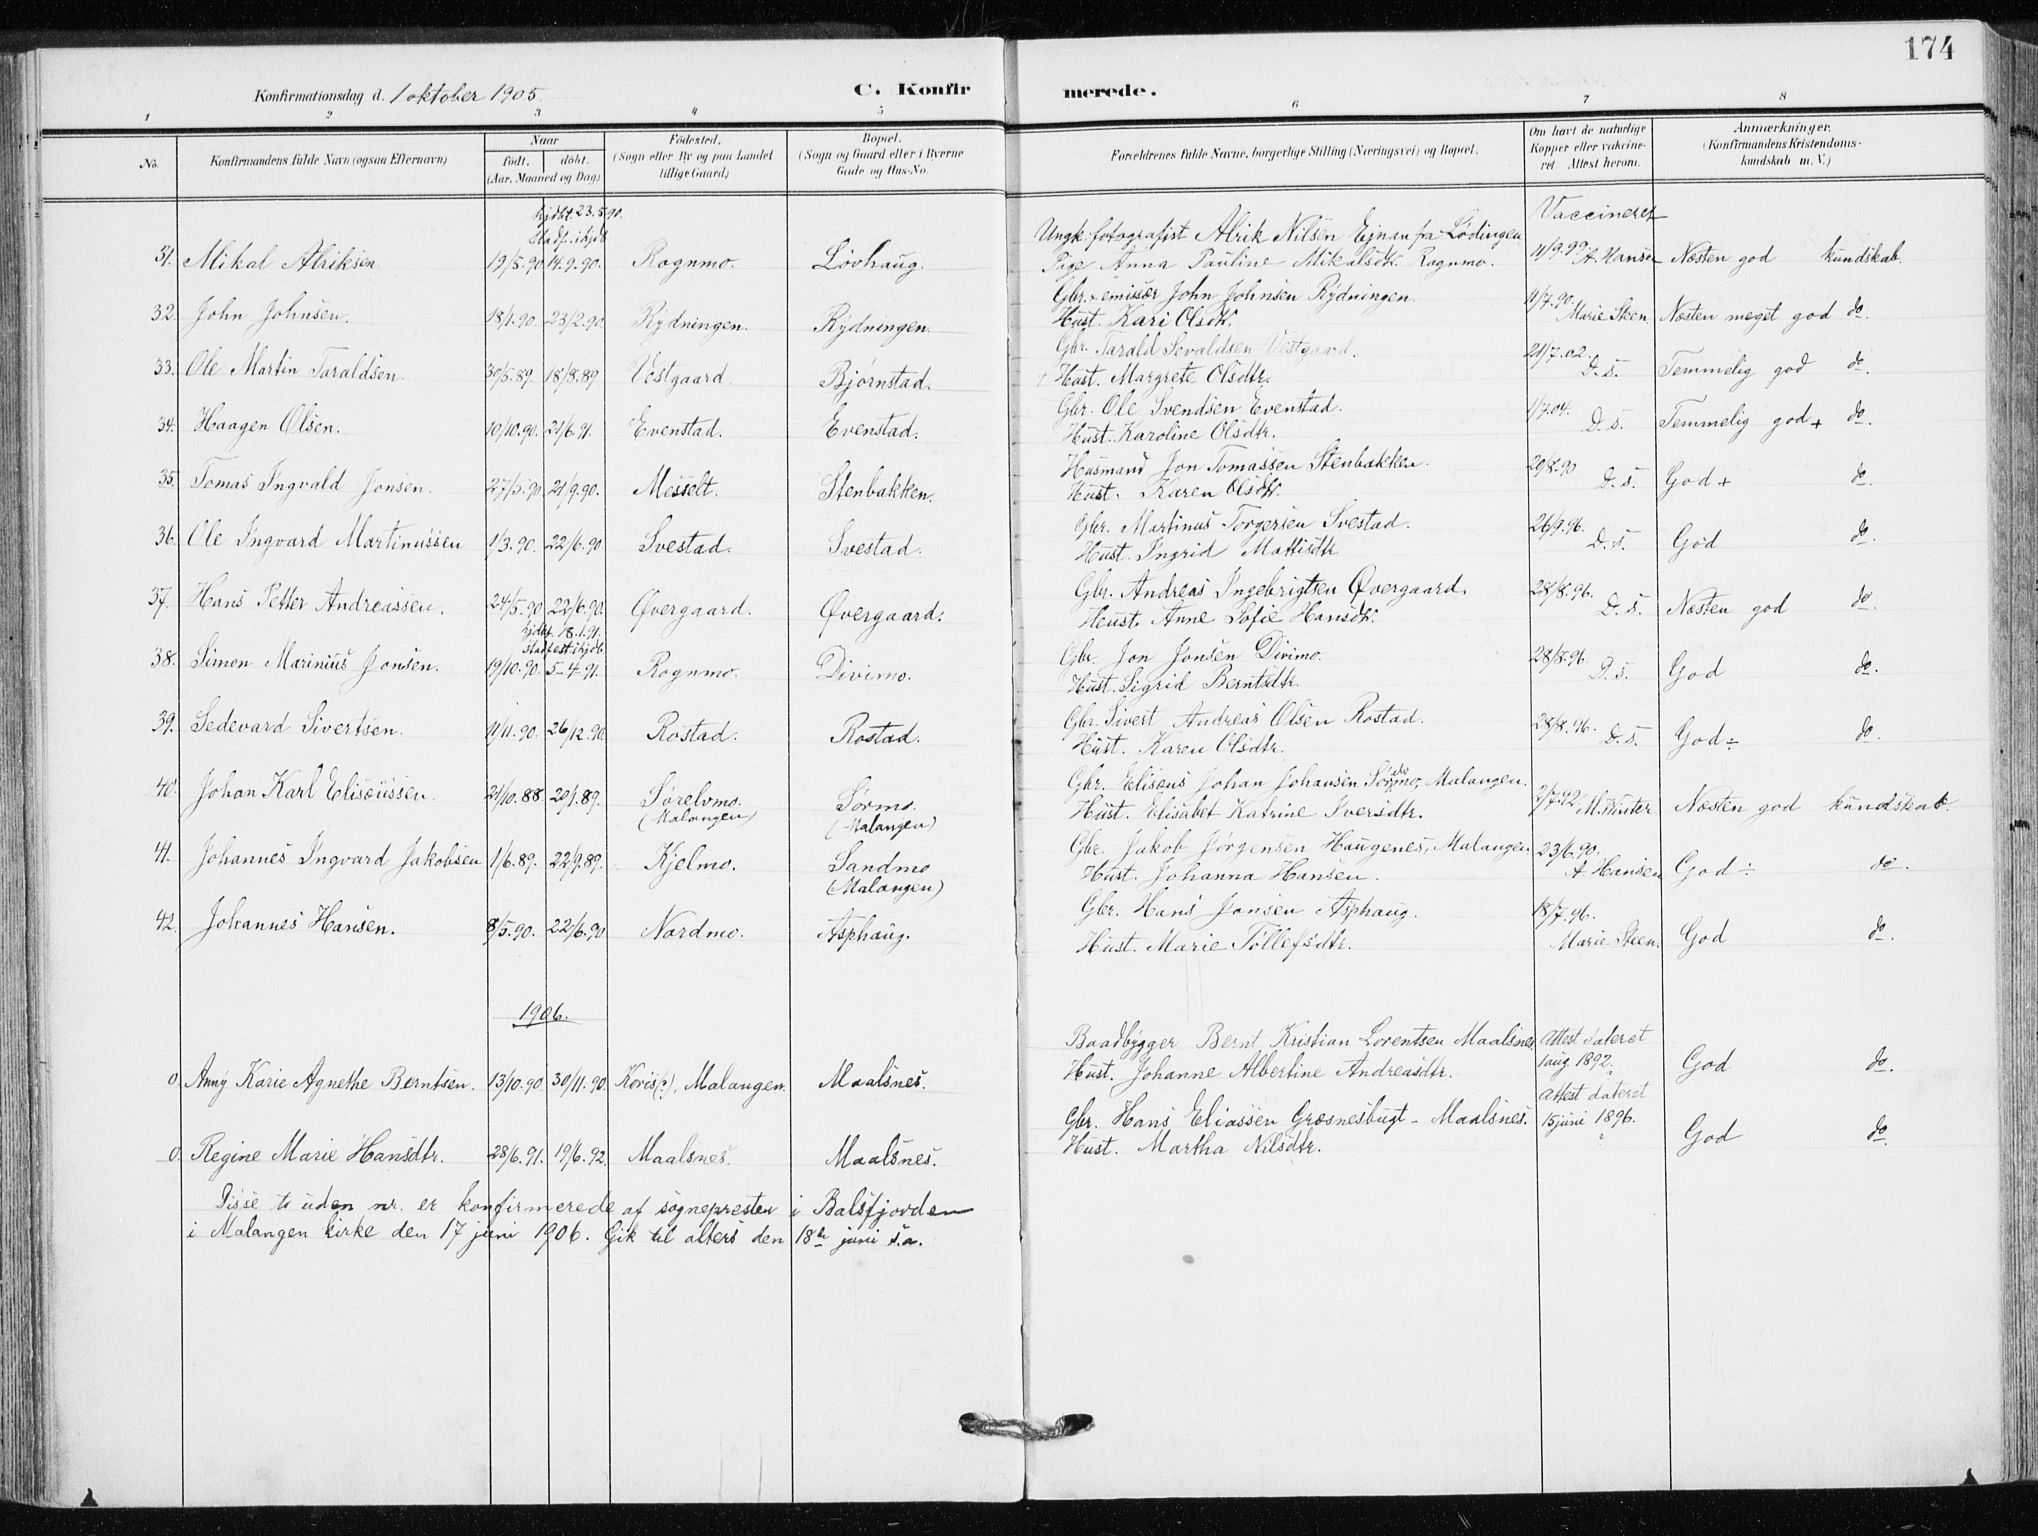 174
Konfirmationsdag d. 1 oktober 1905. C. Konfirmerede.
1 2 3 4 5 6 7 8
No. Konfirmandens fulde Navn (ogsaa Efternavn) Naar født. døbt. (Aar, Maaned og Dag) Fødested. (Sogn eller By og paa Landet tillige Gaard) Bopæl. (Sogn og Gaard eller i Byerne Gade og Hus-No. Forældrenes fulde Navne, borgerlige Stilling (Næringsvei) og Bopæl. Om havt de naturlige Kopper eller vaccineret Attest herom. Anmærkninger. (Konfirmandens Kristendomskundskab m. V.)
Vaccineret
hjdbt. 23.5.90.
stadf. i kjdb Ungk. fotografist Alrik Nilsen Ejnan fra Lødingen
31. Mikal Alriksen 19/5.90 14.9.90. Rognmo. Løvhaug. Pige Anna Pauline Mikalsdtr. Rognmo. 11/9.99 A. Hansen Næsten god kundskab.
Gbr. + emissær John Johnsen Rydningen.
32. John Johnsen. 18/1.90. 23/2.90 Rydningen. Rydningen. Hust. Kari Olsdtr. 11/7.90. Marie Steen. Næsten meget god do.
Gbr. Tarald Sevaldsen Vestgaard.
33. Ole Martin Taraldsen. 30/5.89. 18/8.89 Vestgaard. Bjørnstad. + Hust. Margrete Olsdtr. 21/7.02. D. s. Temmelig god do.
Gbr. Ole Svendsen Evenstad.
34. Haagen Olsen. 10/10.90. 21/6.91. Evenstad. Evenstad. Hust. Karoline Olsdtr. 1/7.04. D. s. Temmelig god + do.
Husmand Jon Tomassen Stenbakken.
35. Tomas Ingvald Jonsen. 27/5.90 21/9.90. Messelt. Stenbakken. Hust. Karen Olsdtr. 20/8.90 D. s. God + do.
Gbr. Martinus Torgersen Svestad.
36. Ole Ingvard Martinussen 1/3.90. 22/6.90. Svestad. Svestad. Hust. Ingrid Mattisdtr 26/9.96. D. s. God do.
Gbr. Andreas Ingebrigtsen Øvergaard.
37. Hans Petter Andreassen. 24/5.90 22/6.90. Øvergaard. Øvergaard. Hust. Anne Sofie Hansdtr. 28/8.96. D. s. Næsten god do.
hjdbt. 18.1.91.
stadfest. i kjdb. Gbr. Jon Jonsen Divimo.
38. Simon Marinius Jonsen. 19/10.90. 5-4-91. Rognmo. Divimo. Hust. Sigrid Berntsdtr. 28/8.96. D. s. God do.
Gbr. Sivert Andreas Olsen Rostad.
39. Sedevard Sivertsen. 11/11.90. 26/12.90. Rostad. Rostad. Hust. Karen Olsdtr. 28/8.96. D. s. God ÷ do.
Gbr. Elisæus Johan Johansen Sørmo, Malangen.
40. Johan Karl Elisæussen. 21/10.88 20/1.89. Sørelvmo. (Malangen) Sørmo. (Malangen) Hust. Elisabet Katrine Iversdtr. 2/7.92. M. Winter Næsten god kundskab.
Gbr. Jakob Jørgensen Haugenes, Malangen.
41. Johannes Ingvard Jakobsen 1/6.89. 22/9.89. Kjelmo. Sandmo (Malangen) Hust. Johanna Hansen. 23/6.90. A Hansen God ÷ do.
Gbr. Hans Jonsen Asphaug.
42. Johannes Hansen. 8/5.90. 22/6.90 Nordmo. Asphaug. Hust. Marie Tollefsdtr. 18/7.96. Marie Steen. God do.
1906.
Baadbygger Bernt Kristian Lorentsen Maalsnes Attest dateret
0. Anny Karie Agnethe Berntsen. 13/10.90 30/11.90. Koris(?), Malangen. Maalsnes. Hust. Johanne Albertine Andreasdtr. 1 aug 1892. God do.
Gbr. Hans Eliassen Græsnesbugt - Maalsnes. Attest dateret
0. Regine Marie Hansdtr. 28/6.91. 19/6.92. Maalsnes. Maalsnes. Hust. Martha Nilsdtr. 15 juni 1896. God do.
Disse to uden nr. er konfirmerede af sognepresten i Balsfjorden
i Malangen kirke den 17 juni 1906. Gik til alters den 18de juni s.a.